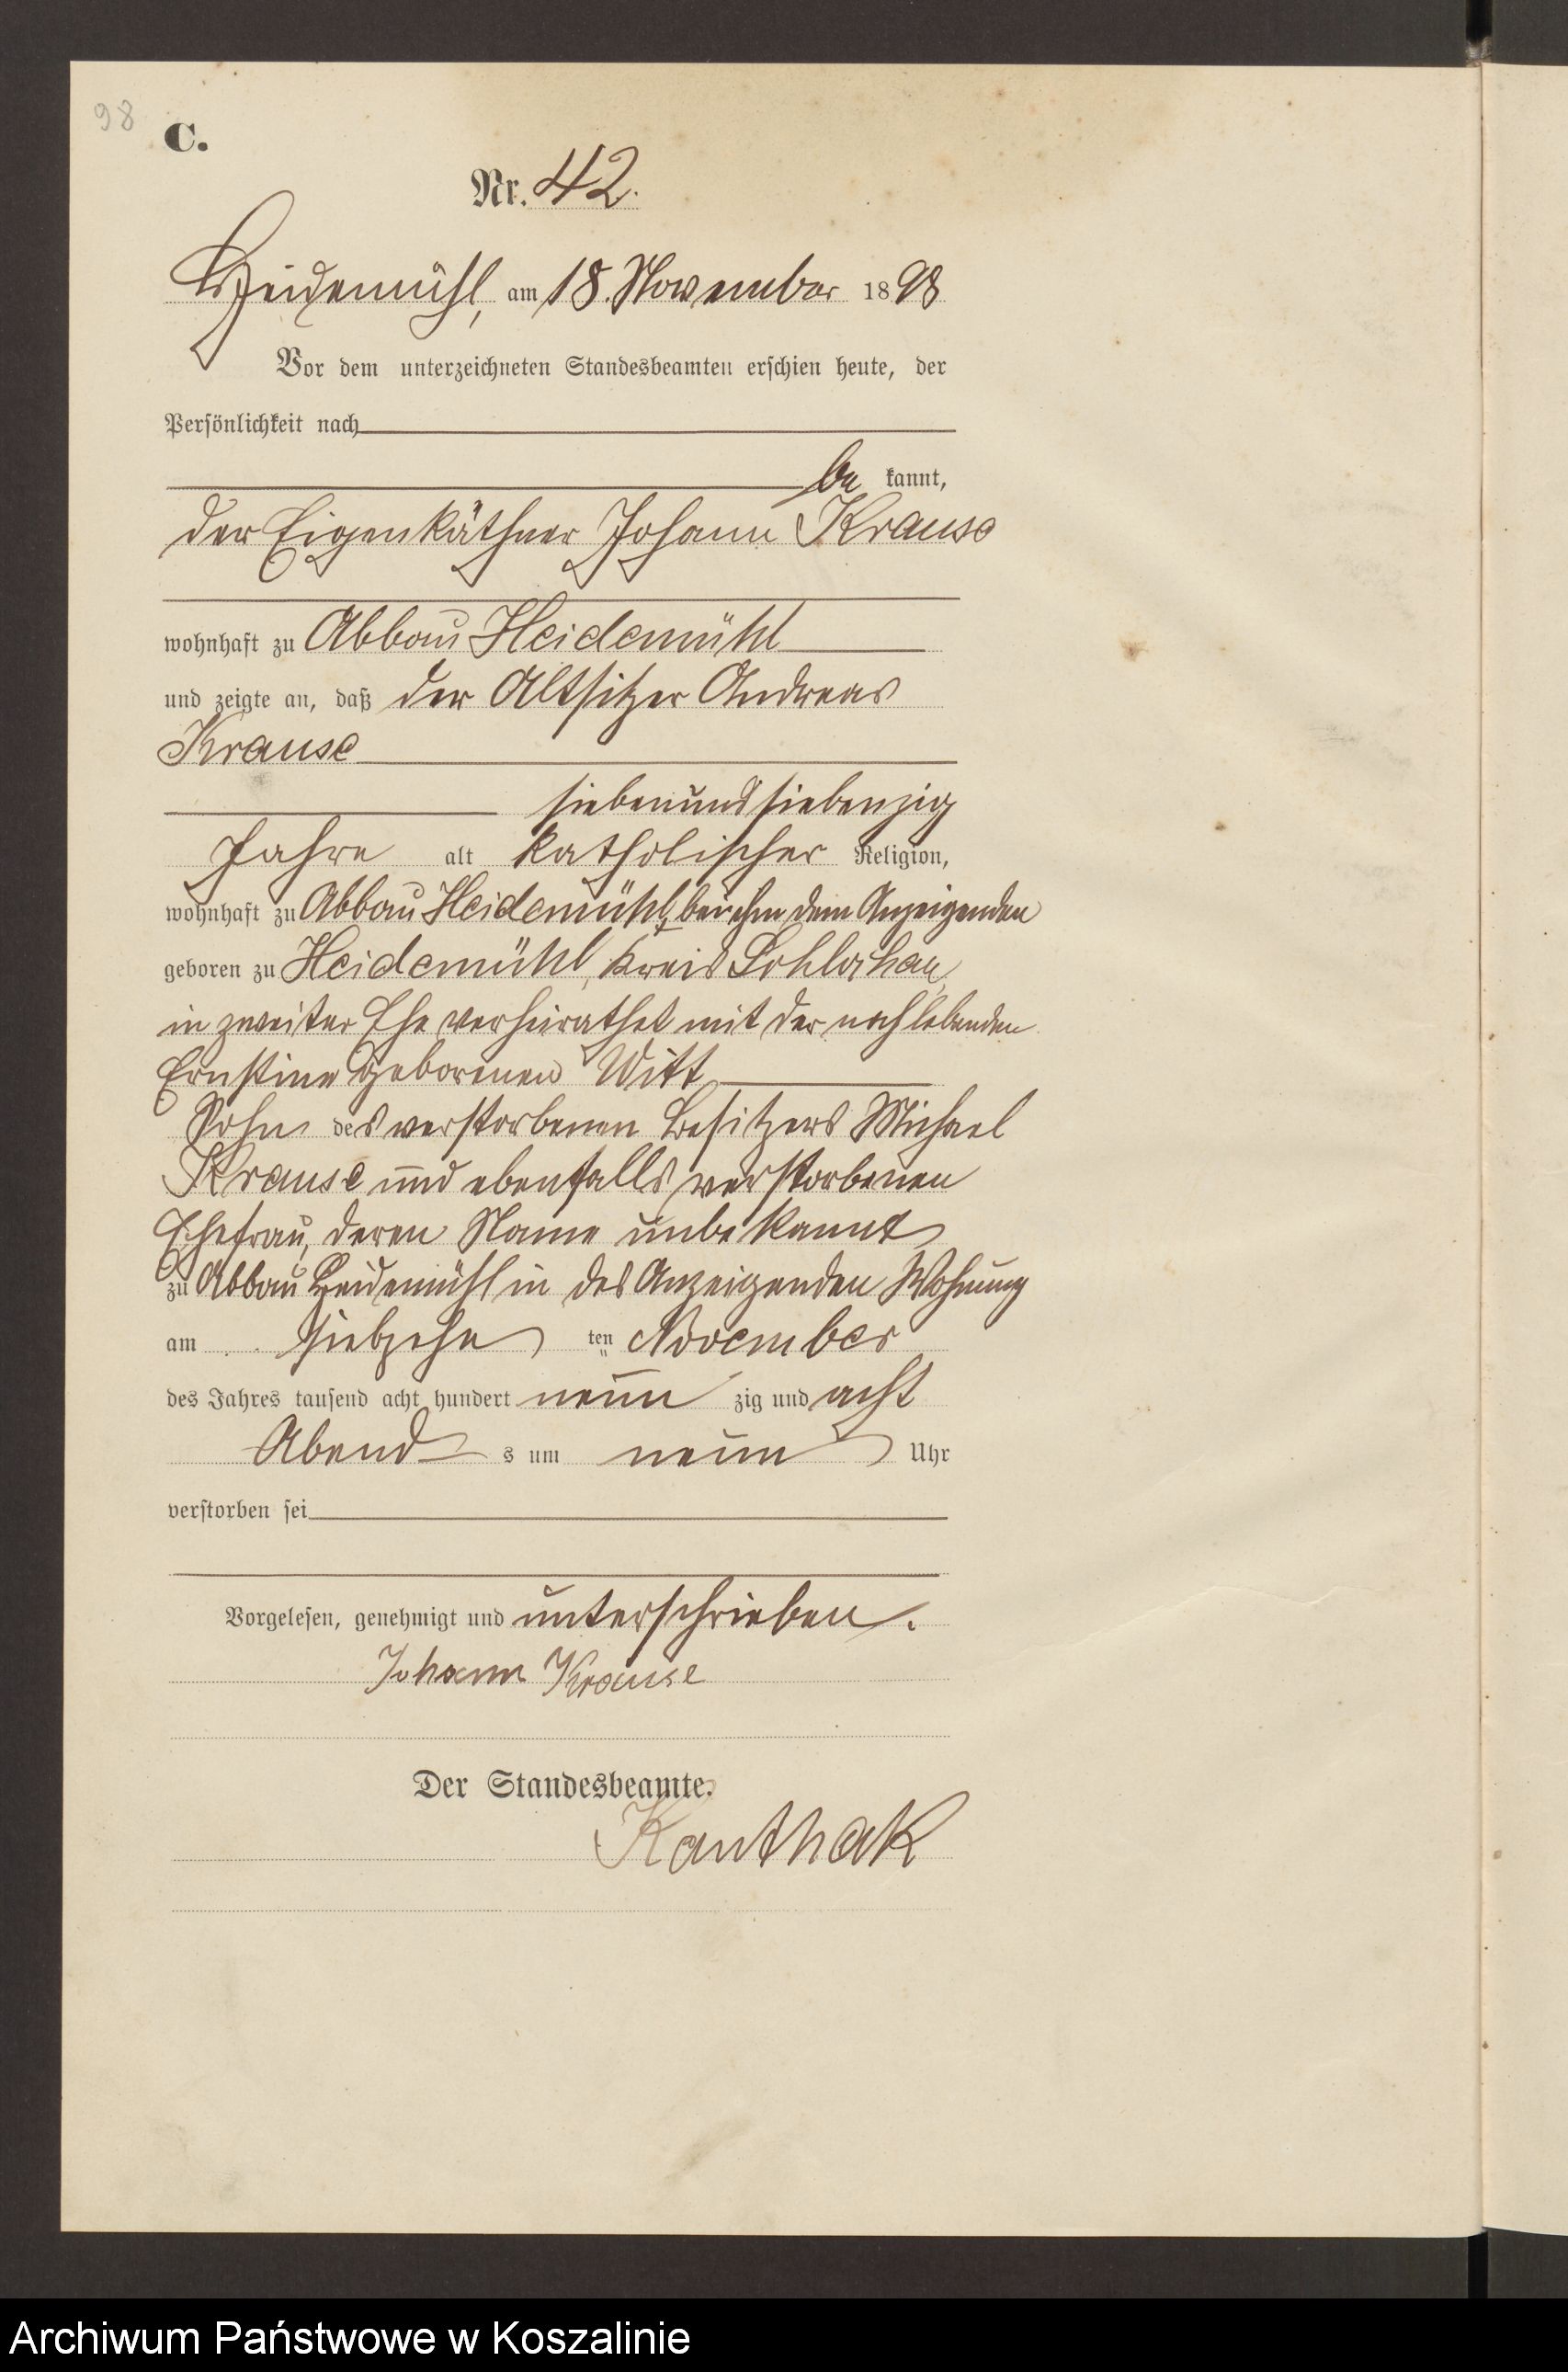 98
C.
Nr. 42.
Heidemühl, am 18. November 1898
Vor dem unterzeichneten Standesbeamten erschien heute, der
Persönlichkeit nach
be kannt,
der Eigenkäthner Johann Krause
wohnhaft zu Abbau Heidemühl
und zeigte an, daß der Altsitzer Andreas
Krause
siebenundsiebenzig
Jahre alt katholischer Religion,
wohnhaft zu Abbau Heidemühl, bei ihm dem Anzeigenden
geboren zu Heidemühl, Kreis Schlochau,
in zweiter Ehe verheirathet mit der noch lebenden
Ernstine geborenen Witt
Sohn des verstorbenen Besitzers Michael
Krause und ebenfalls verstorbenen
Ehefrau, deren Name unbekannt
zu Abbau Heidemühl in des Anzeigenden Wohnung
am siebzehn ten November
des Jahres tausend acht hundert neun zig und acht
Abend s um neun Uhr
verstorben sei
Vorgelesen, genehmigt und unterschrieben.
Johann Krause
Der Standesbeamte.
Kanthak
Archiwum Państwowe w Koszalinie